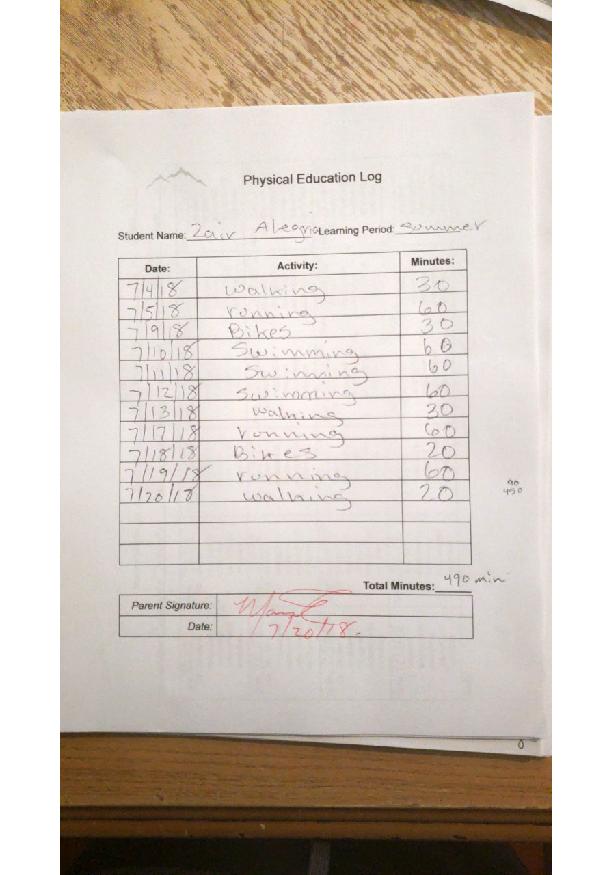 Physical Education Log
Student Name: Zair Alegria Learning Period: Summer
Date: Activity: Minutes:
7/4/18 walking 30
7/5/18 running 60
7/9/18 Bikes 30
7/10/18 Swimming 60
7/11/18 Swimming 60
7/12/18 Swimming 60
7/13/18 walking 30
7/17/18 running 60
7/18/18 Bikes 20
7/19/18 running 60
7/20/18 walking 20
Total Minutes: 490 min
Parent Signature:
Date: 7/20/18.